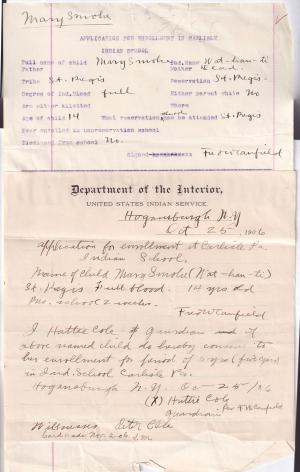 Mary Smoke
APPLICATION FOR ENROLLMENT IN CARLISLE
INDIAN SCHOOL
Full name of child Mary Smoke Ind. Name Wat-han-ti
Father Mother dead.
Tribe St. Regis Reservation St. Regis.
Degree of Ind. Blood full Either parent white No
Are either allotted Where
Age of child 14 What reservation school has he attended St. Regis
Ever enrolled in nonreservation school
Discharged from school No.
Signed Fred W Canfield
Department of the Interior,
UNITED STATES INDIAN SERVICE.
Hogansburgh N.Y
Oct 25, 1906
Application for enrollment at Carlisle Pa.
Indian School.
Name of Child Mary Smoke (Wat-han-ti)
St. Regis Full blood. 14 yrs old
school 2 weeks.
Fred W Canfield
I Hattie Cole guardian of
above named child do hereby consent to
her enrollment for period of 5 yrs (five years)
in Ind. School Carlisle Pa.
Hogansburgh N.Y. Oct 25/06
(X) Hattie Cole
guardian Per F W Canfield
Witnesses Cole
Card made Nov. 2-06